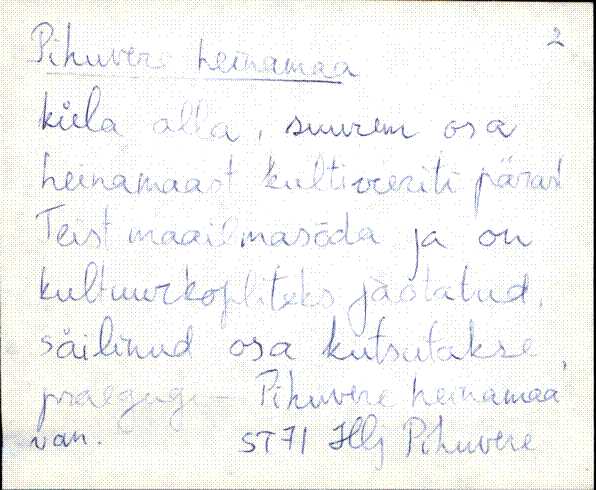 Pihuvere heinamaa 2
küla alla, suurem osa
heinamaast kultiveeriti pärast
Teist maailmasõda ja on
kultuurkopliteks jäötatud,
säilinud osa kutsutakse
praegugi - Pihuvere heinamaa,
van. ST71 Hlj Pihuvere